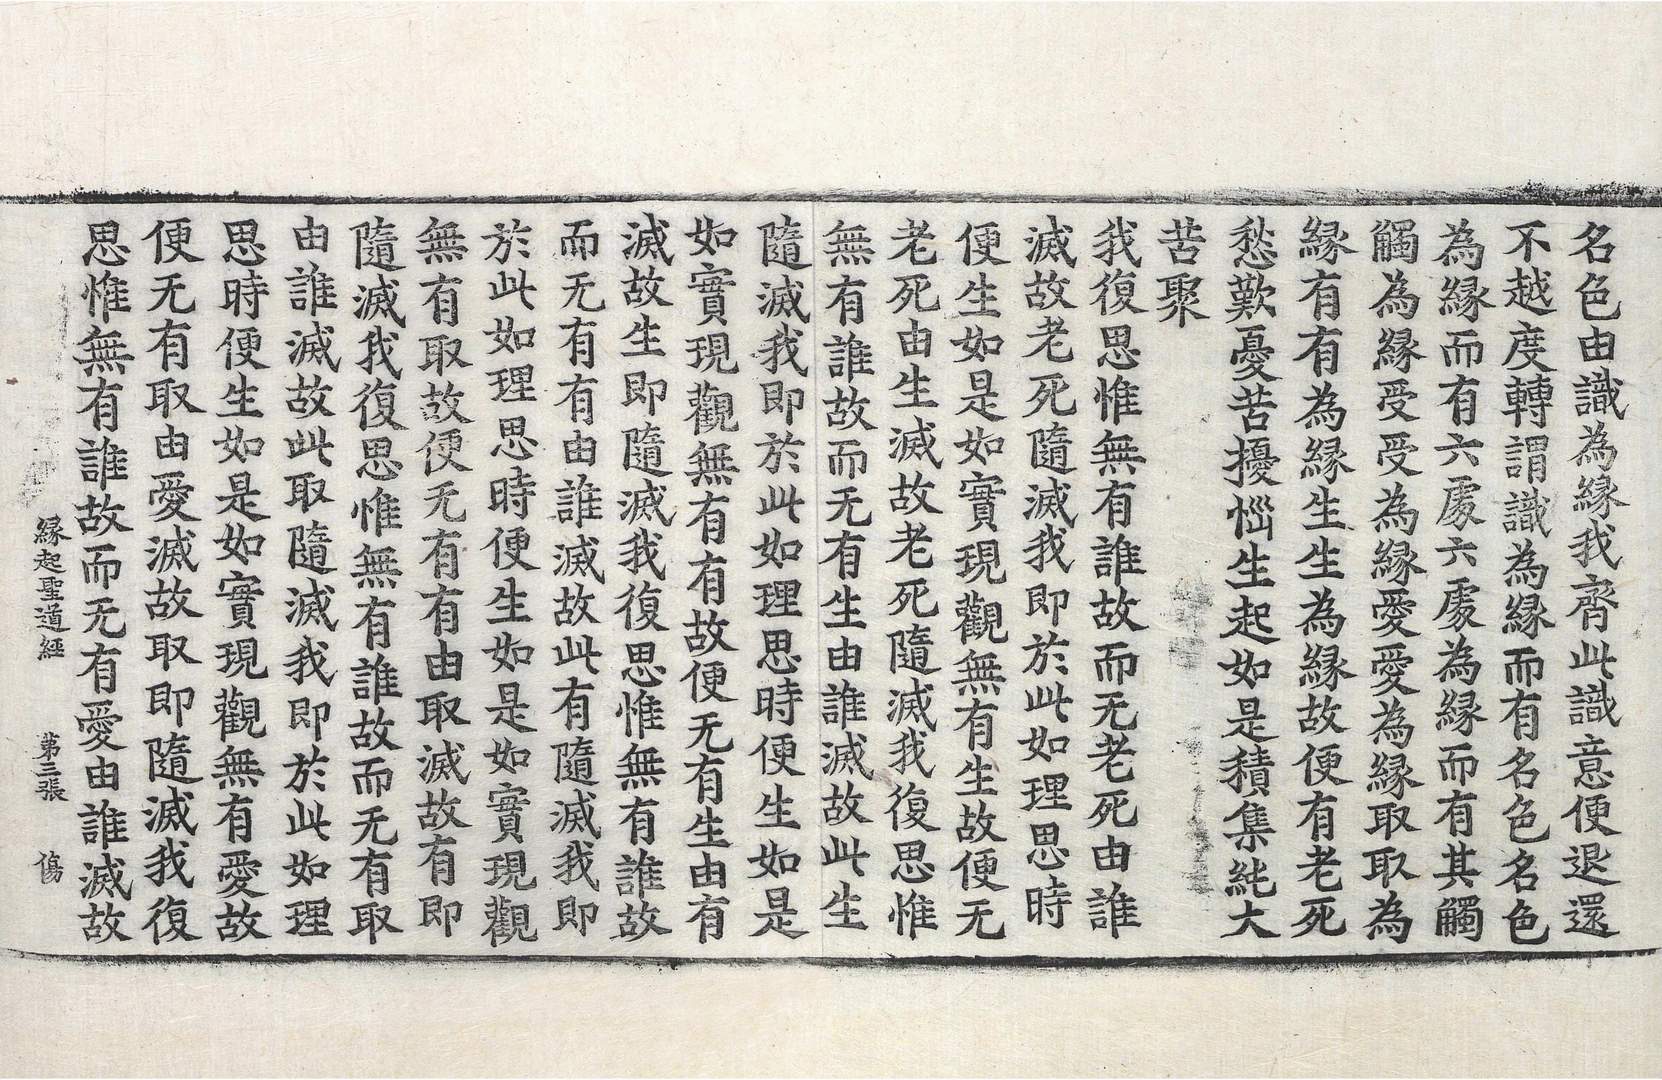 名色由識為緣我齊此識意便退還
不越度轉謂識為緣而有名色名色
為緣而有六處六處為緣而有其觸
觸為緣受受為緣愛愛為緣取取為
緣有有為緣生生為緣故便有老死
愁歎憂苦擾惱生起如是積集純大
苦聚
我復思惟無有誰故而无老死由誰
滅故老死隨滅我即於此如理思時
便生如是如實現觀無有生故便无
老死由生滅故老死隨滅我復思惟
無有誰故而无有生由誰滅故此生
隨滅我即於此如理思時便生如是
如實現觀無有有故便无有生由有
滅故生即隨滅我復思惟無有誰故
而无有有由誰滅故此有隨滅我即
於此如理思時便生如是如實現觀
無有取故便无有有由取滅故有即
隨滅我復思惟無有誰故而无有取
由誰滅故此取隨滅我即於此如理
思時便生如是如實現觀無有愛故
便无有取由愛滅故取即隨滅我復
思惟無有誰故而无有愛由誰滅故
緣起聖道經 第三張 傷